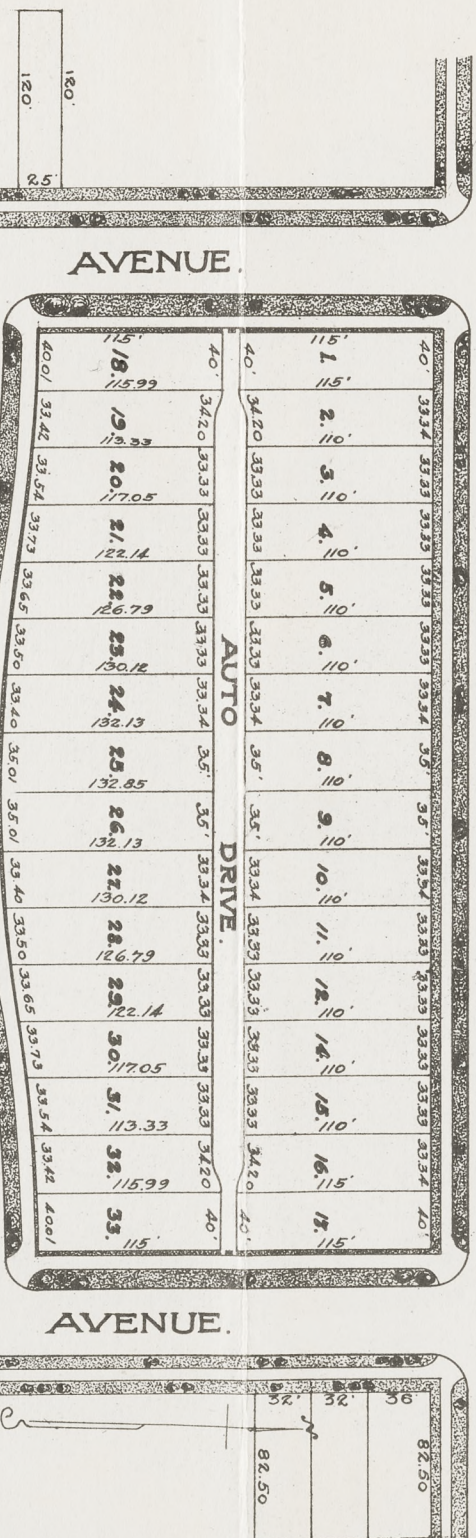 120'
120'
25'
AVENUE.
115'
18.
115.99
40.01
40'
40'
115'
1.
115'
40'
33.42
19.
113.33
34.20
34.20
2.
110'
33.34
33.54
20.
117.05
33.33
33.33
3.
110'
33.33
33.73
21.
122.14
33.33
33.33
4.
110'
33.33
33.65
22.
126.79
33.33
33.33
5.
110'
33.33
33.50
23.
130.12
33.33
33.33
6.
110'
33.33
33.40
24.
132.13
33.34
33.34
7.
110'
33.34
35.01
25.
132.85
35'
35'
8.
110'
35'
35.01
26.
132.13
35'
35'
9.
110'
35'
33.40
27.
130.12
33.34
33.34
10.
110'
33.34
33.50
28.
126.79
33.33
33.33
11.
110'
33.33
33.65
29.
122.14
33.33
33.33
12.
110'
33.33
33.73
30.
117.05
33.33
33.33
14.
110'
33.33
33.54
31.
113.33
33.33
33.33
15.
110'
33.33
33.42
32.
115.99
34.20
34.20
16.
115'
33.34
40.01
33.
115'
40'
40'
115'
40'
AUTO DRIVE.
AVENUE.
32'
32'
36
82.50
82.50
N